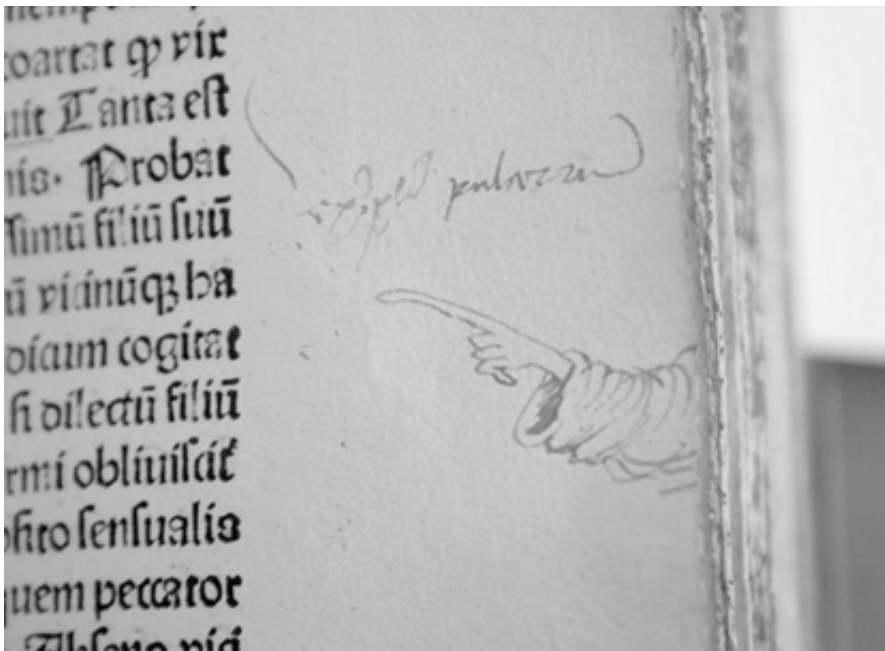 coartat ꝙ vir
uit Tanta est
nis. Probat
ssimū filiū suū
ū vicinūqꝫ ha
dicum cogitat
si dilectū filiū
rmi obliuiscit᷑
osito sensualis
quem peccator
exꝑ̄ pulcrum